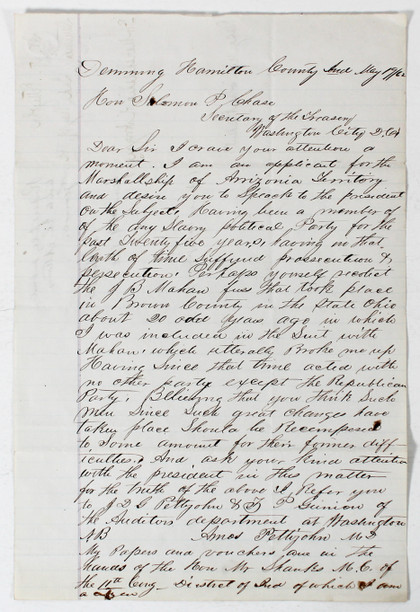 Demming Hamilton County Ind May 17/62
Hon Solomon P, Chase
Secretary of the Treasury
Washington City D. C.
Dear Sir I crave your attention a
moment. I am an applicant for the
Marshallship of Arrizonia Territory
and desire you to Speak to the president
on the Subject, Having been a member of
of the Slavry political Party for the
past Twenty five years, having in that
time Suffered prossecution &
persecution. Perhaps yourself recolect
the J B Mahan fuss that took place
in Brown County in the State Ohio
about 20 odd years ago in which
I was included in the Suit with
Mahan, which utterally Broke me up
Having Since that time acted with
no other party except the Republican
Party. Believing that you think Such
Men Since Such great changes have
taken place Should be Recompensed
to Some amount for their former diff
iculties. And ask your kind attention
with the president in this matter
for the truth of the above I Refer you
to J D G Pettijohn & P
of the Auditors department at Washington
NB Amos Pettijohn M D
My Papers and vouchers are in the
hands of the Hon Mr Shanks M. C. of
the 11th Cong District of Ind of which I am
a